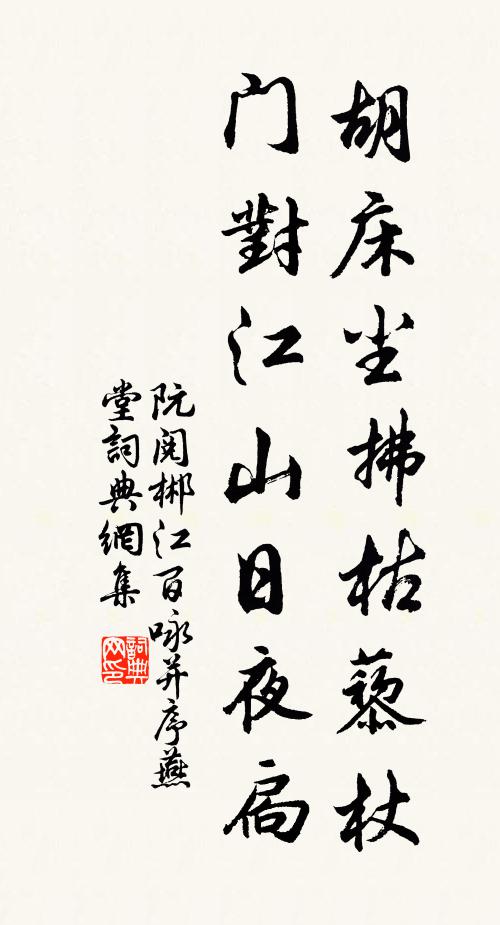 胡床尘拂枯藜杖
门對江山日夜扃
阮阅郴江百咏并序燕
堂詞典網集
詞典
网印